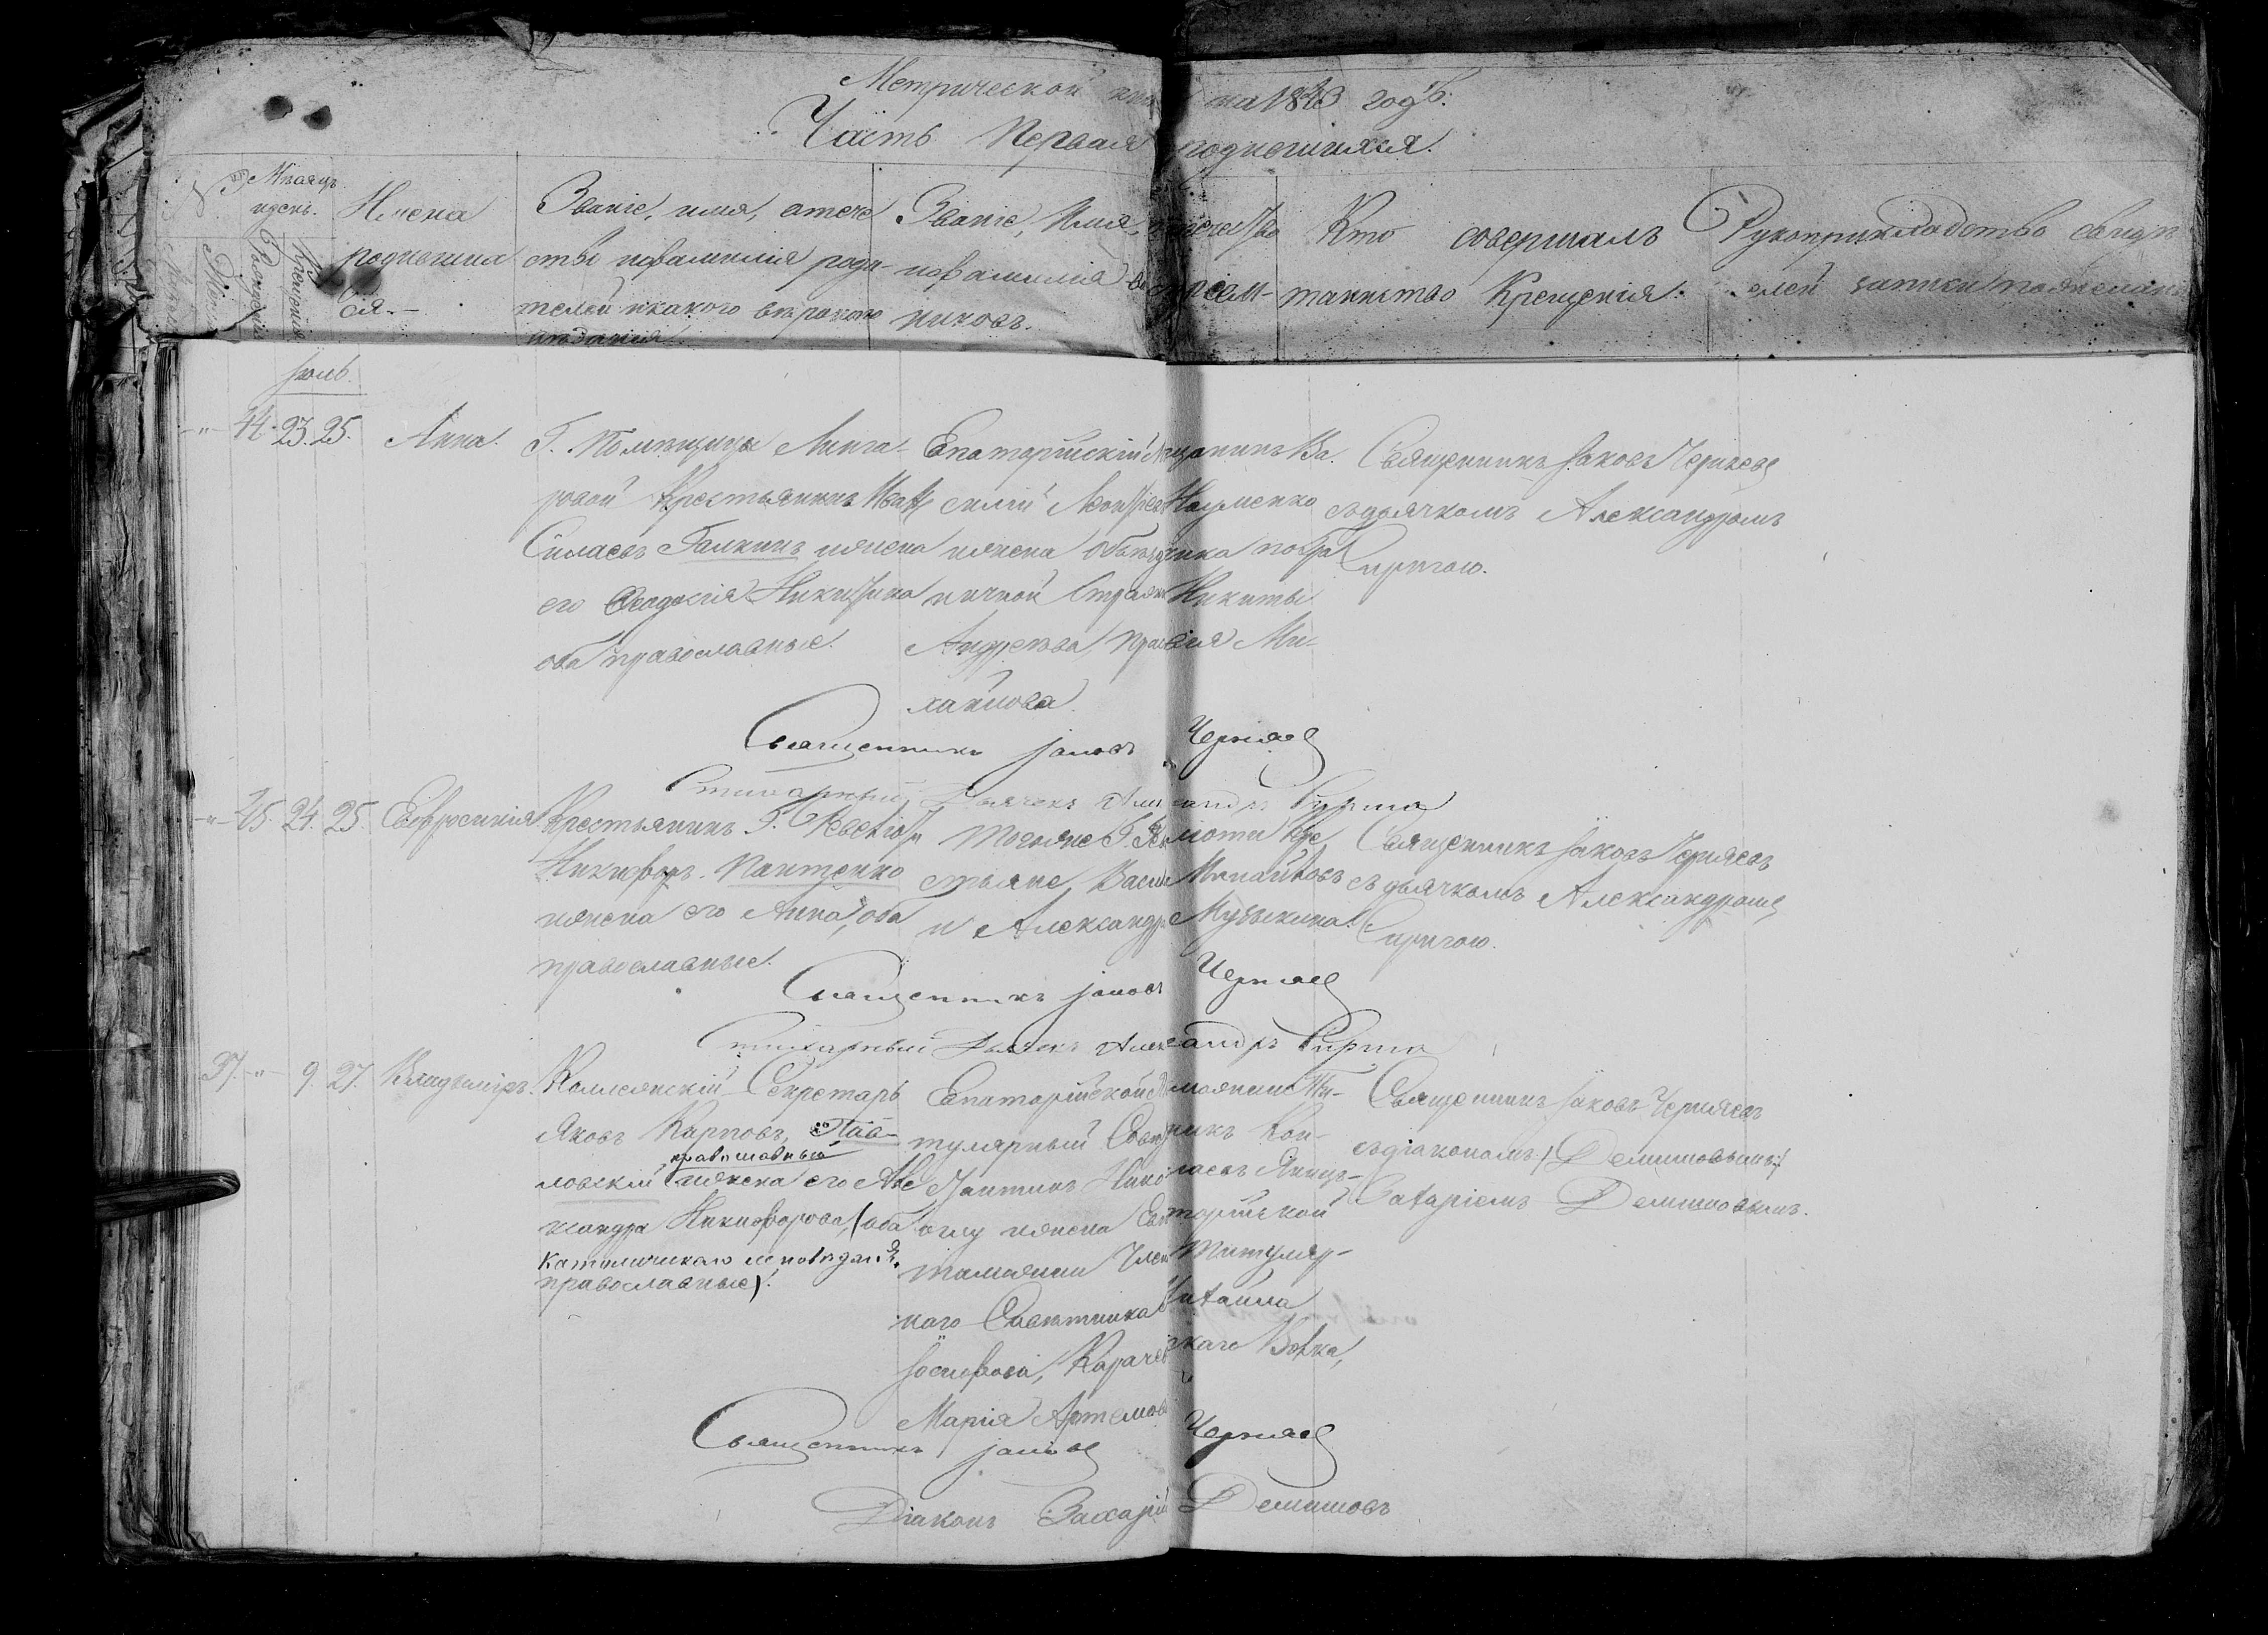 Метрической на 18 годъ.
Часть Первая родившихся.
№
Мѣсяцъ и день.
Рожденія
Крещенія
Имена родившихся.
Званіе, имя, отечество и фамилія родителей и какого вѣроисповѣданія.
Званіе, Имя, отечество и фамилія воспріемниковъ.
Кто совершалъ таинство Крещенія.
Рукоприкладство свидѣтелей записи
Іюль
-"- 44. 23. 25. Анна.
Г. Помѣщицы
Крестьянинъ Иванъ
Силаевъ Галкинъ и жена
его Ѳеодосія Никитина
оба православные.
Евпаторійскій мѣщанинъ Ва-
силій Науменко
и жена объѣздчика погра-
ничной Стражи Никиты
Андреева Ми-
хайлова
Священникъ Іаковъ Черняев
съ дьячкомъ Александромъ
Сиригою.
Священникъ Іаковъ Черняев
Стихарный Дьячекъ Александръ
-"- 45. 24. 25. Евфросинія
Крестьянинъ Г.
Никифоръ Пантенко
и жена его Анна, оба
православные.
Тогоже Г. Кре-
стьяне, Михайловъ
и Александра Музыкина.
Священникъ Іаковъ Черняевъ
съ дьячкомъ Александромъ
Сиригою.
Священникъ Іаковъ Черняев
Стихарный Дьячекъ Александръ
37. -"- 9. 27. Владиміръ.
Коллежскій Секретарь
Яковъ Карповъ, Пав-
православный
ловскій и жена его Алек-
сандра Никифорова, (оба
католическаго исповѣданія.
православные).
Евпаторійской Таможни Ти-
тулярный Совѣтникъ Кон-
стантинъ
жена Евпаторійской
таможни Члена Титуляр-
наго Совѣтника Михаила
Іосифова, Волка,
Марія Артемова
Священникъ Іаковъ Черняевъ
съ діакономъ (Демишовымъ)
Захаріемъ Демишовымъ.
Священникъ Іаковъ Черняев
Діаконъ Захарій Демишовъ